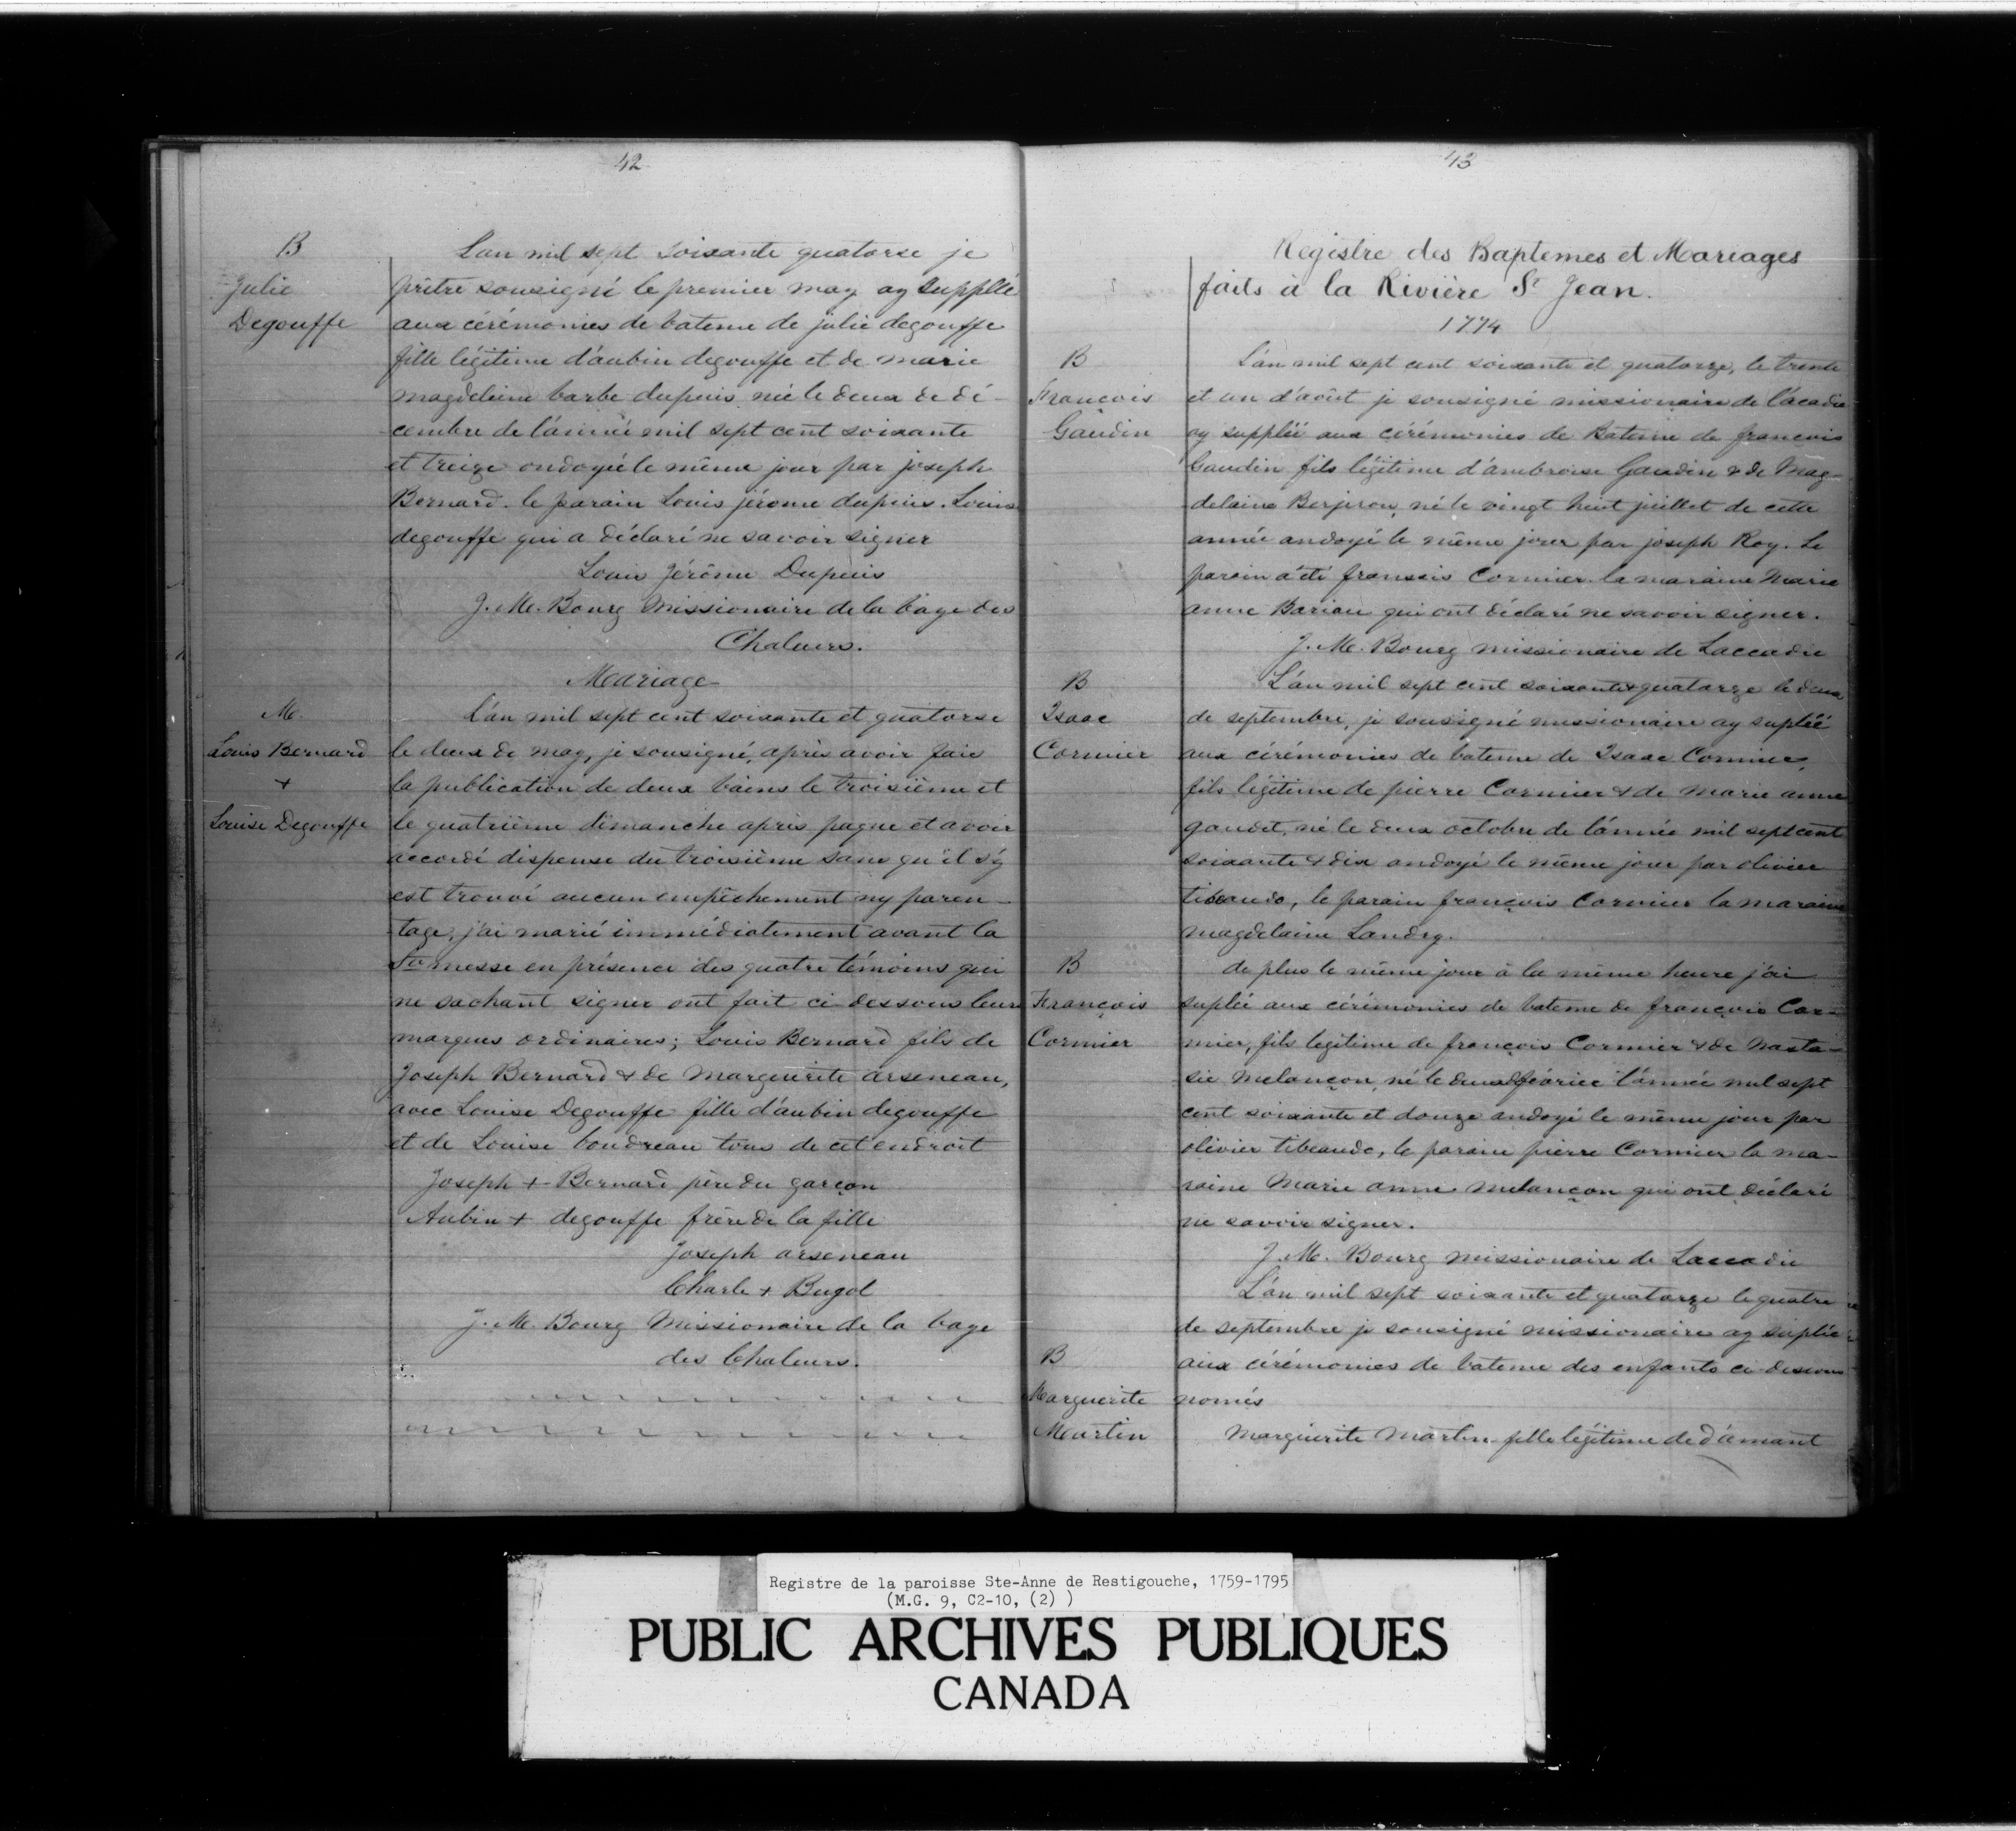 42
B
Julie
Degouffe
L'an mil sept soixante quatorse je
prêtre sousigné le premier may ay supplée
aux cérémonies de bateme de julie degouffe
fille légitime d'aubin degouffe et de marie
magdeleine barbe dupuis née le deux de dé-
cembre de l'année mil sept cent soixante
et treize ondoyée le même jour par joseph
Bernard. le parain Louis jérome dupuis. Louise
degouffe qui a déclaré ne savoir signer
Louis Jérôme Dupuis
J. M. Bourg Missionaire de la baye des
Chaleurs.
Mariage
M.
Louis Bernard
+
Louise Degouffe
L'an mil sept cent soixante et quatorse
le deux de may, je sousigné, après avoir faie
la publication de deux bains le troisième et
le quatrième dimanche après paque et avoir
accordé dispense du troisième sans qu'il s'y
est trouvé aucun empêchement ny paren-
tage, j'ai marié immédiatement avant la
Ste messe en présence des quatre témoins qui
ne sachant signer ont fait ci-dessous leurs
marques ordinaires; Louis Bernard fils de
Joseph Bernard & de Marguerite arseneau,
avec Louise Degouffe fille d'aubin degouffe
et de Louise boudreau tous de cet endroit
Joseph + Bernard père du garçon
Aubin + degouffe frère de la fille
Joseph arseneau
Charle + Bugol
J. M. Bourg Missionaire de la baye
des Chaleurs.
43
Registre des Baptemes et Mariages
faits à la Rivière St Jean.
1774
B
François
Gaudin
L'an mil sept cent soixante et quatorze, le trente
et un d'août je sousigné missionaire de l'acadie
ay supplée aux cérémonies de Bateme de françois
Gaudin fils légitime d'ambroise Gaudin & de Mag-
delaine Berjeron, né le vingt huit juillet de cette
année andoyé le même jour par joseph Roy. Le
parain a été franssis Cormier la maraine Marie
anne Bariau qui ont déclaré ne savoir signer.
J. M. Bourg missionaire de Laccadie
B
Isaac
Cormier
L'an mil sept cent soixante & quatorze le deux
de septembre, je sousigné missionaire ay suplée
aux cérémonies de bateme de Isaac Cormier,
fils légitime de pierre Cormier & de marie anne
gaudet, né le deux octobre de l'année mil sept cent
soixante & dix andoyé le même jour par olivier
tibeaudo, le parain françois Cormier la maraine
magdelaine Landry.
B
François
Cormier
de plus le même jour à la même heure j'ai
suplée aux cérémonies de bateme de françois Cor-
mier, fils légitime de françois Cormier & de nasta-
sie Melançon, né le deux février l'année mil sept
cent soixante et douze andoyé le même jour par
olivier tibeaudo, le parain pierre Cormier la ma-
raine Marie anne melançon qui ont déclaré
ne savoir signer.
J. M. Bourg missionaire de Laccadie
B
Marguerite
Martin
L'an mil sept soixante et quatorze le quatre
de septembre je sousigné missionaire ay suplée
aux cérémonies de bateme des enfants ci-dessous
només
Marguerite Martin fille légitime de d'amant
Registre de la paroisse Ste-Anne de Restigouche, 1759-1795
(M.G. 9, C2-10, (2) )
PUBLIC ARCHIVES PUBLIQUES
CANADA